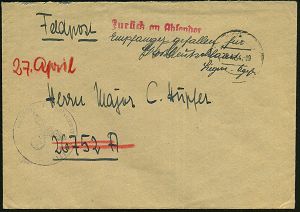 Feldpost
Zurück an Absender
Empfänger gefallen für
Großdeutschland
27. April
Herrn Major C. Hüpfer
26752 A